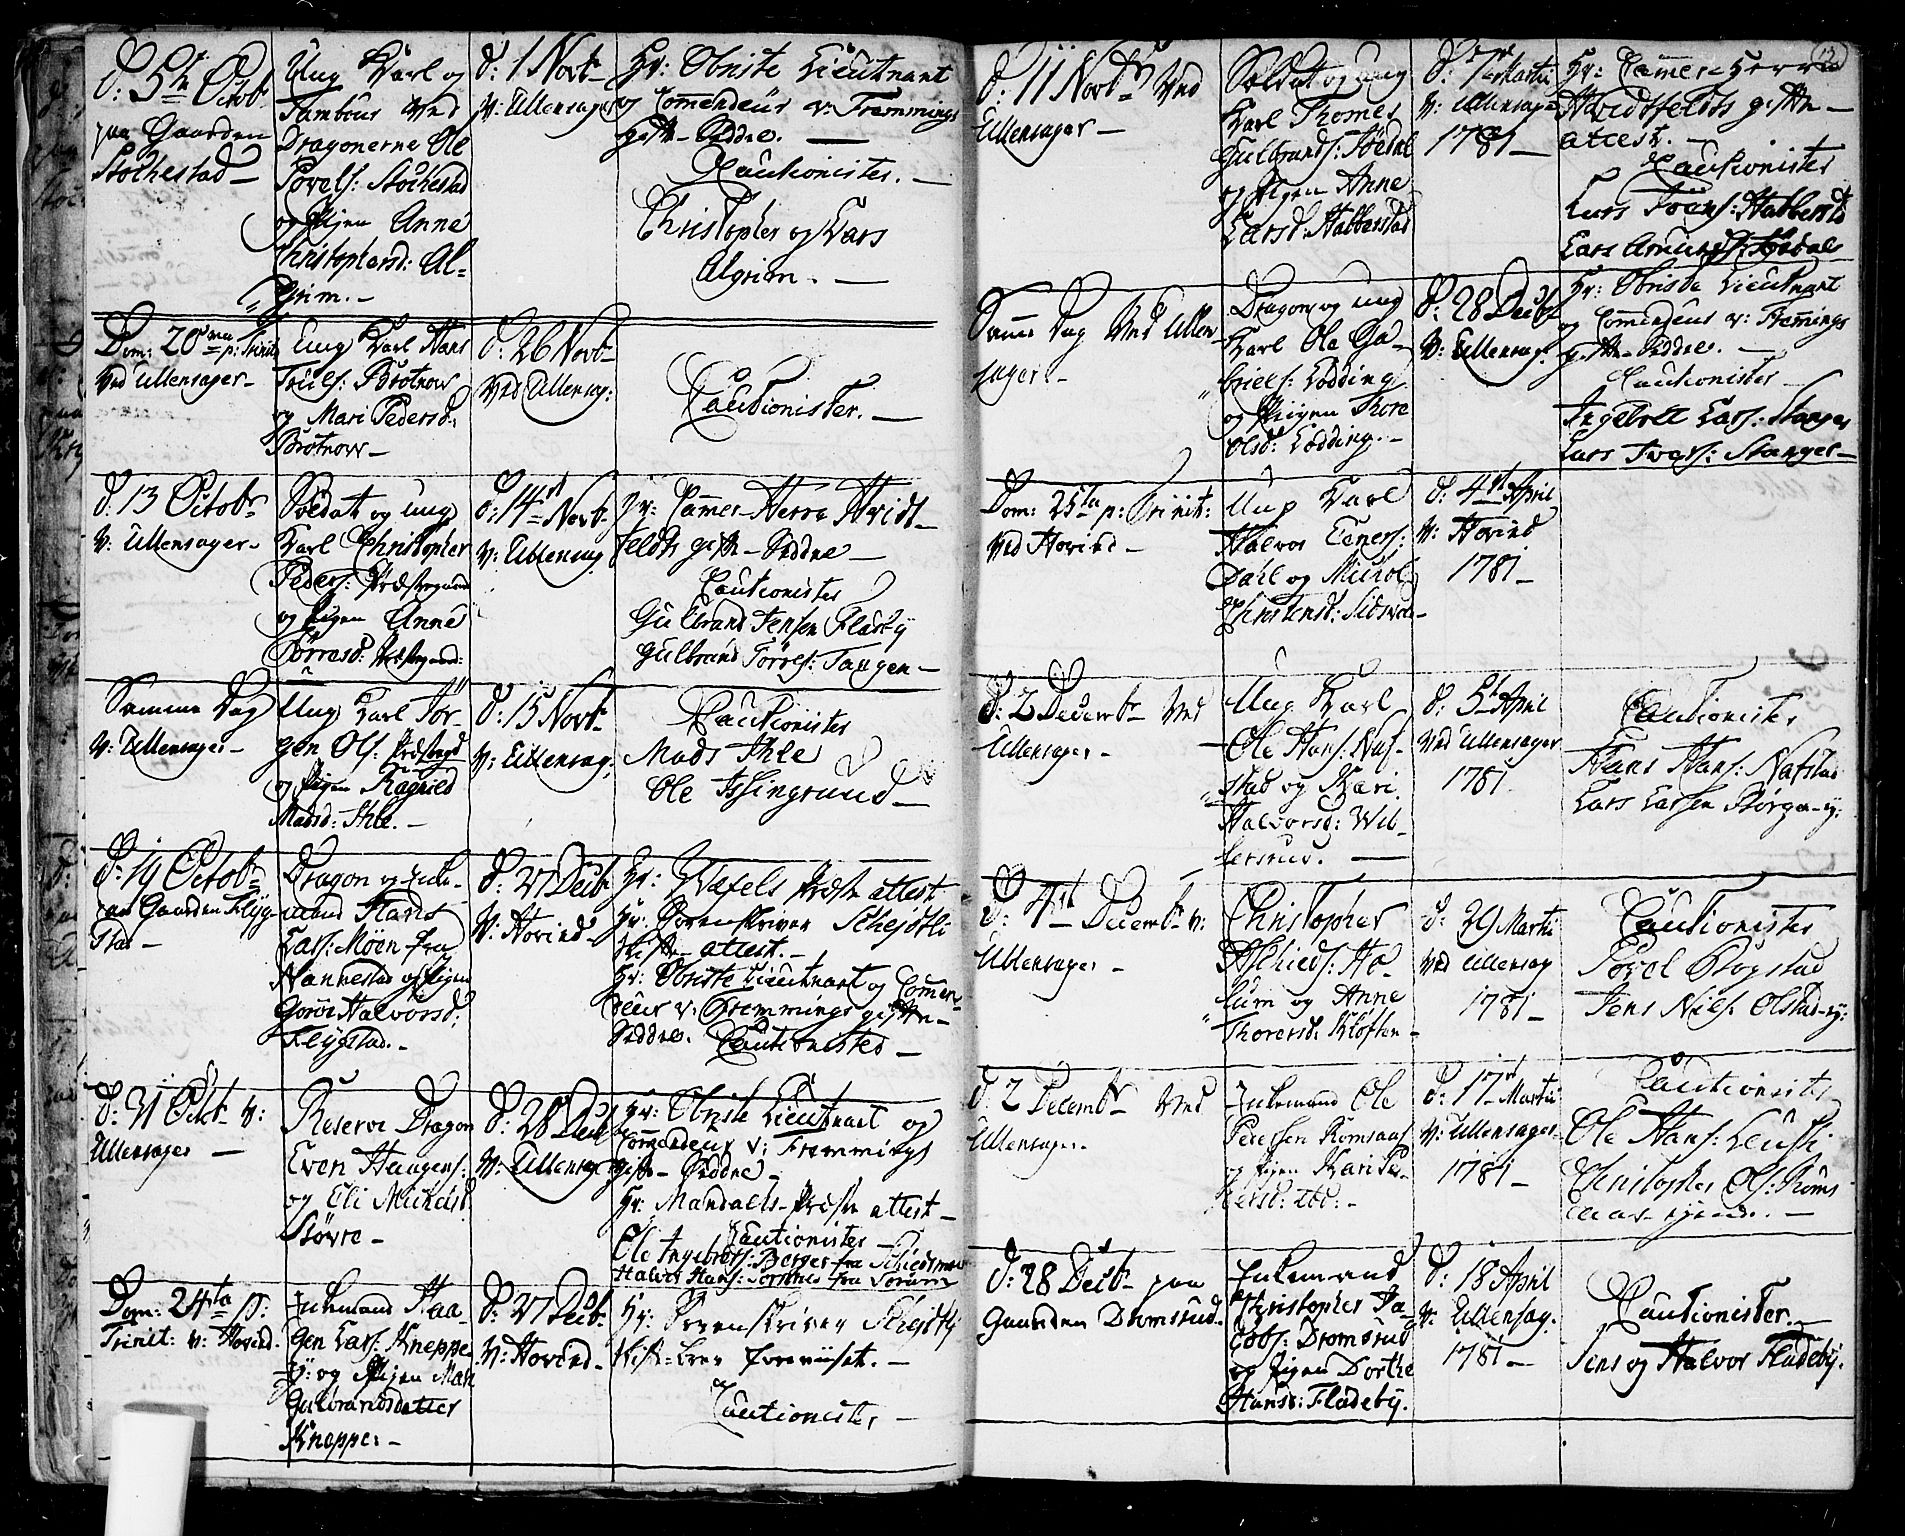 13
d: 5te Octobr
paa Gaarden
Stochestad –
Ung Karl og
Tambour ved
Dragonerne Ole
Povels: Stochestad
og Pigen Anne
Christophersd: Al=
grim. –
d: 1 Novbr
v: Ullensager
Hr: Obriste Lieutnant
og Commendeur v: Fremmings
gifte-Seddel. –
Cautionister. –
Christopher og Lars
Algrim. –
Dom: 20ma p: Trinit
ved Ullensager –
Ung Karl Hans
Truls: Brotnow
og Mari Pedersd:
Brotnow –
d: 26 Novbr
ved Ullensag:
Cautionister. –
d: 13 Octobr
v: Ullensager –
Soldat og ung
Karl Christopher
Peders: Præstegaard
og Pigen Anne
Børresd: Præstegaard:
d: 14de Novbr
v: Ullensag
Hr: Cammer-Herre Hvidt-
feldts gifte-Seddel –
Cautionister
Gulbrand Jensen Fladby
Gulbrand Torers: Taugen –
Samme Dag
v: Ullensager –
Ung Karl Jør-
gen Ols: Præstegrd
og Pigen Ragnild
Madsd: Ihle. –
d: 15 Novbr
v: Ullensag:
Cautionister
Mads Ihle
Ole Issingrund –
d: 19 Octobr
paa Gaarden Flyg-
stad –
Dragon og Enke-
mand Hans
Lars: Moen fra
Nannestad og Pigen
Goroe Halvorsd:
Flygstad. –
d: 27 Decbr
v: Hovind –
Hr: Wefels Præste attest
Hr: Sorenskriver Schejdtli
skifte-attest. –
Hr: Obriste Lieutnant og Commen-
deur v: Fremmings gifte-
Seddel. Cautionisted –
d: 31 Octbr v:
Ullensager –
Reserve Dragon
Even Haagens:
og Eli Michelsd:
Støvre –
d: 28 Decbr
v: Ullensag
Hr: Obriste Lieutnant og
Commendeur v: Fremmings
gifte-Seddel –
Hr: Mandaels-Præste attest –
Cautionister –
Ole Ingebrets: Berger fra Schiedsmoe
Halvor Hans: fra Sørum
Dom: 24ta p:
Trinit: v: Hovind
Enkemand Haa-
gen Lars: Kneppe
og Pigen Mari
Gulbrandsdatter
Kneppe. –
d: 27 Decbr
v: Hovind –
Hr: Sorenskriver Schejdtli
skifte-brev foreviiset. –
Cautionister –
d: 11 Novbr ved
Ullensager –
Soldat og ung
Karl Thomes
Gulbrands: Hødal
og Pigen Anne
Larsd: Habberstad
d: 7de Martii
v: Ullensager
1781 –
Hr: Cammer-Herre
Hvidtfeldts gifte-
attest. –
Cautionister
Lars Ivers: Habberstd
Lars Amunds: Hødals
Samme Dag ved Ullen-
sager. –
Dragon og ung
Karl Ole Ga-
briels: Lødding
og Pigen Thore
Olsd: Lødding. –
d: 28 Decbr
v: Ullensag:
Hr: Obriste Lieutnant
og Commendeur v: Fremmings
gifte-Seddel. –
Cautionister –
Ingebret Lars: Stanger
Lars Ivers: Stanger –
Dom: 25ta p: Trinit:
ved Hovind –
Ung Karl
Halvor Eeners:
Dahl og Michol
Christensd:
d: 4de April
v: Hovind
1781 –
d: 2 Decembr ved
Ullensager –
Ung Karl
Ole Hans: Naf-
stad og Kari
Halvorsd: Wil-
bersrud. –
d: 5te April
ved Ullensager
1781
Cautionister
Hans Hans: Nafstad
Lars Larsen
d: 4de Decembr v:
Ullensager –
Christopher
Aschields: Ho-
lum og Anne
Thorersd: Kløften –
d: 29 Martii
ved Ullensag
1781 –
Cautionister
Povel Bogstad
Jens Niels: Olstad
d: 2 Decembr ved
Ullensager –
Enkemand Ole
Pedersen Romsaas
og Pigen Kari Pe-
dersd: ibd: –
d: 17de Martii
v: Ullensager
1781 –
Cautionister
Ole Hans: Leuski
Christopher Ols: Roms
d: 28 Decbr paa
Gaarden Dromsrud
Enkemand
Christopher Ja-
cobs: Dromsrud
og Pigen Dorthe
Hansd: Fladeby.
d: 18 April
v: Ullensag:
1781 –
Cautionister. –
Jens og Halvor Fladeby.